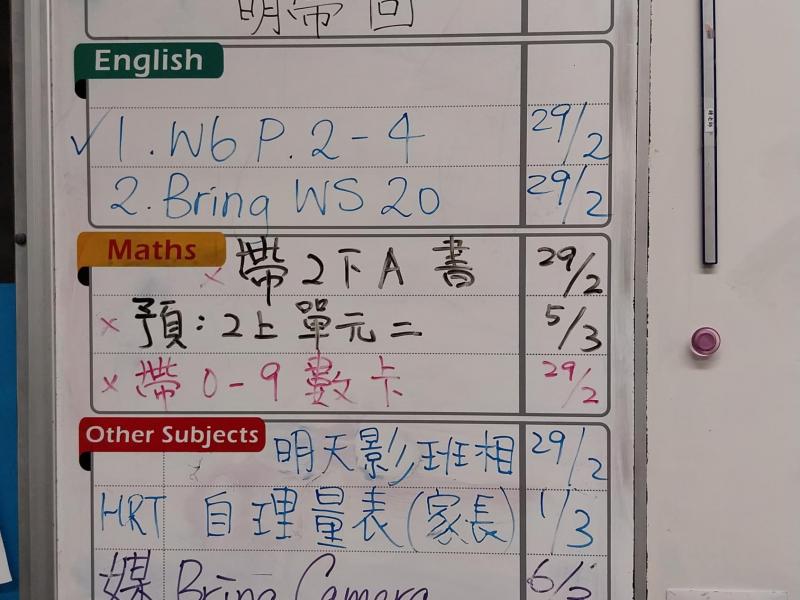 明帶回
English
✓ 1. Wb P. 2-4 29/2
2. Bring WS 20 29/2
Maths
× 帶 2下A 書 29/2
× 預：2上單元二 5/3
× 帶 0-9 數卡 29/2
Other Subjects
明天影班相 29/2
HRT 自理量表(家長) 1/3
媒 Bring Camera